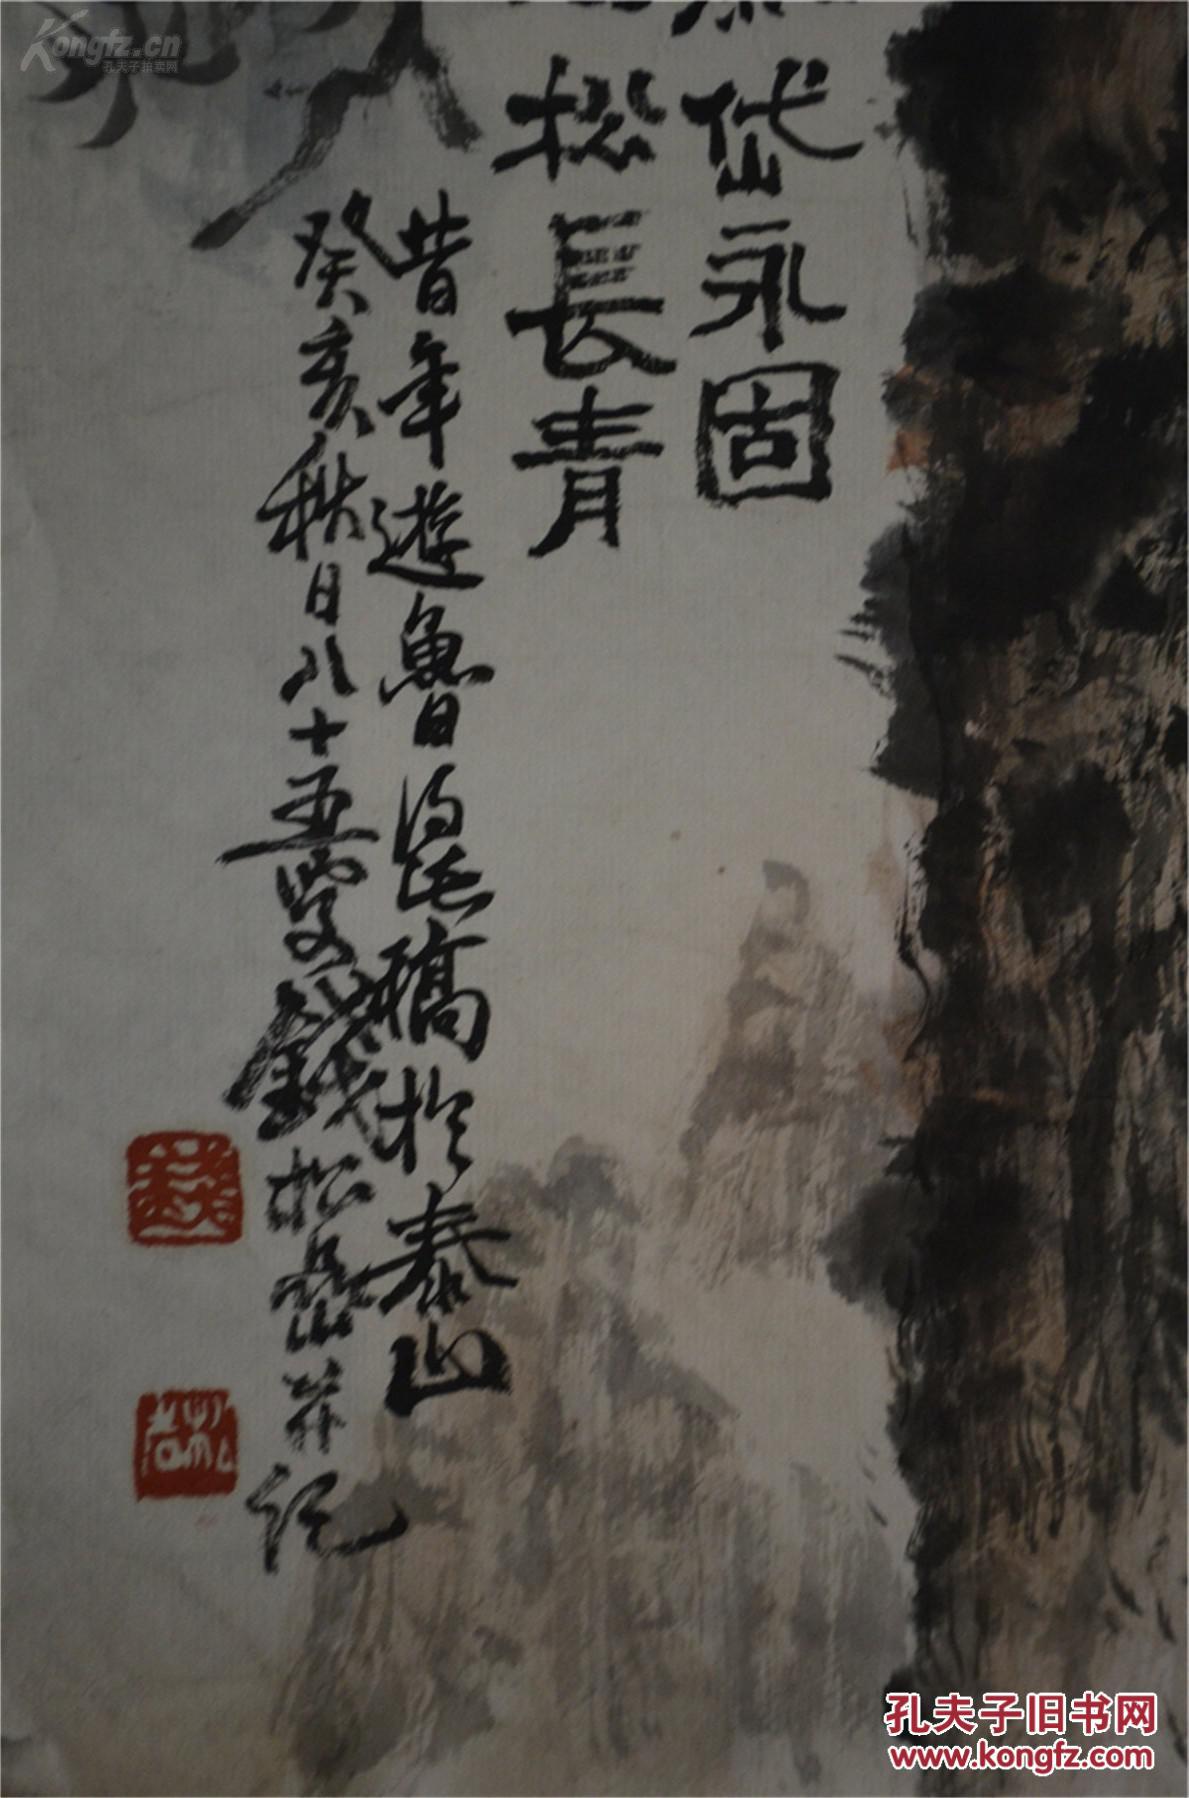 岱永固
松長青
昔年遊魯得此稿於泰山
癸亥秋日八十五叟錢松嵒并記
錢
松嵒
Kongfz.cn
孔夫子拍卖网
孔夫子旧书网
www.kongfz.com